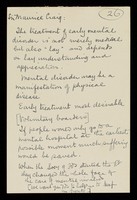 Sir Maurice Craig:
(26)
The treatment of early mental
disorder is not merely medical
but also "lay" and depends
on lay understanding and
appreciation.
Mental disorder may be a
manifestation of physical
disease
Early treatment most desirable
(Voluntary boarders)
If people would only go to a
mental hospital at the earliest
possible moment much suffering
would be saved.
When the Lacy &
day changed